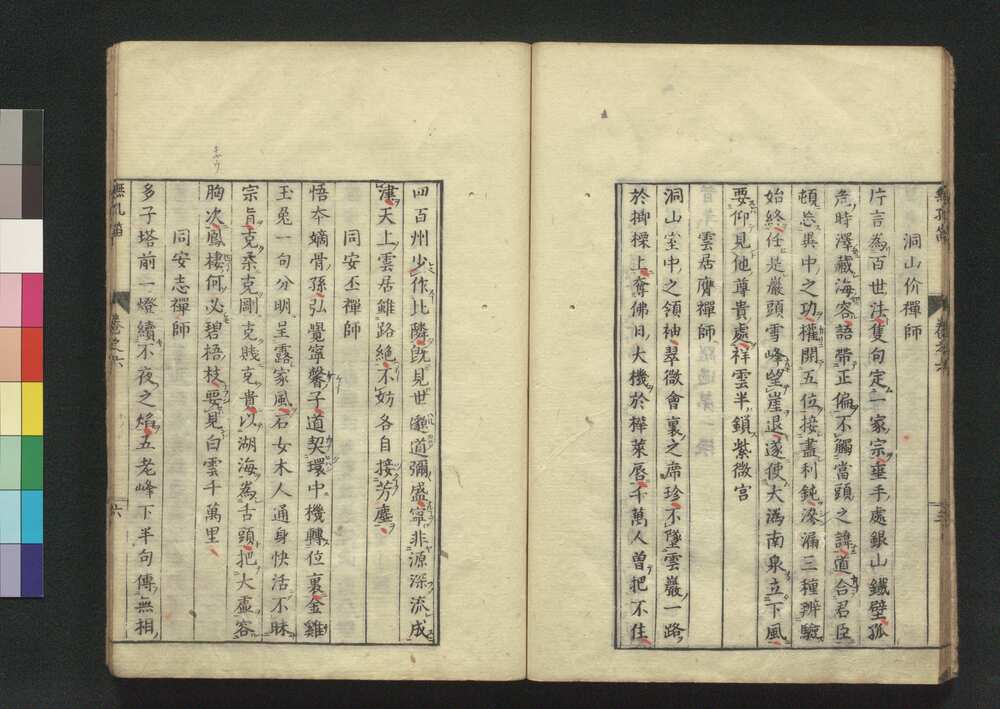 洞山价禪師
片言為百世法隻句定一家宗垂手處銀山鐵壁孤
危時澤藏海容語帶正偏不觸當頭之諱道合君臣
頓忘異中之功權開五位接盡利鈍滲漏三種辨驗
始終任是巖頭雪峰望崖退遂使大溈南泉立下風
要仰見他尊貴處祥雲半鎖紫微宮
雲居膺禪師
洞山室中之領袖翠微會裏之席珍不墜雲巖一路
於拋櫟上奪佛日大機於樺萊唇千萬人曾把不住
四百州少作比隣既見世繇道彌盛寧非源深流成
津天上雲居雖路絶不妨各自接芳塵
同安丕禪師
悟本嫡骨孫弘覺寧馨子道契環中機轉位裏金雞
玉兔一句分明呈露家風石女木人通身快活不昧
宗旨克柔克剛克賤克貴以湖海為舌頭把大虛容
胸次鳳棲何必碧梧枝要見白雲千萬里
同安志禪師
多子塔前一燈續不夜之焰五老峰下半句傳無相
無孔笛 卷之六 六